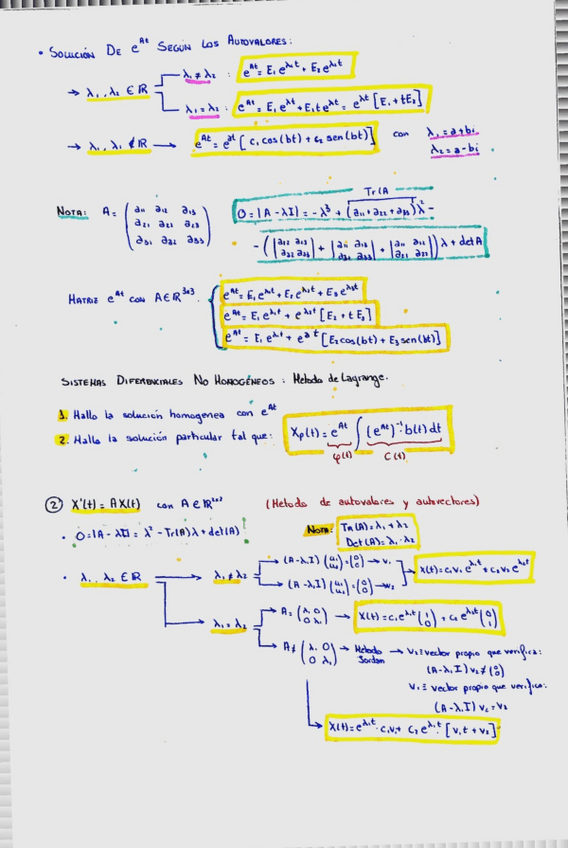 • SOLUCIÓN DE e^At SEGÚN LOS AUTOVALORES:
→ λ₁, λ₂ ∈ ℝ
λ₁ ≠ λ₂ : e^At = E₁e^λ₁t + E₂e^λ₂t
λ₁ = λ₂ : e^At = E₁e^λt + E₂te^λt = e^λt [E₁ + tE₂]
→ λ₁, λ₂ ∉ ℝ → e^At = e^at [c₁ cos(bt) + c₂ sen(bt)] con λ₁ = a+bi
λ₂ = a-bi
Tr(A
NOTA: A = (a₁₁ a₁₂ a₁₃
a₂₁ a₂₂ a₂₃
a₃₁ a₃₂ a₃₃)
0 = |A - λI| = -λ³ + (a₁₁ + a₂₂ + a₃₃)λ² -
λ + det A
MATRIZ e^At CON A ∈ ℝ^3x3
e^At = E₁e^λ₁t + E₂e^λ₂t + E₃e^λ₃t
e^At = E₁e^λ₁t + e^λ₂t [E₂ + tE₃]
e^At = E₁e^λ₁t + e^at [E₂cos(bt) + E₃sen(bt)]
SISTEMAS DIFERENCIALES NO HOMOGÉNEOS : Metodo de Lagrange.
1. Hallo la solución homogenea con e^At
2. Hallo la solución particular tal que: Xp(t) = e^At ∫ (e^At)⁻¹·b(t)dt
φ(t) C(t)
② X'(t) = AX(t) con A ∈ ℝ^2x2 (Metodo de autovalores y autovectores)
• 0 = |A - λI| = λ² - Tr(A)λ + det(A)
Nota: Tr(A) = λ₁ + λ₂
Det(A) = λ₁·λ₂
• λ₁, λ₂ ∈ ℝ → λ₁ ≠ λ₂
(A-λI)(u₁ u₂) = (0 0) → v₁
(A-λI)(u₁ u₂) = (0 0) → v₂
X(t) = c₁v₁e^λ₁t + c₂v₂e^λ₂t
λ₁ = λ₂
A = (λ₁ 0
0 λ₁) → X(t) = c₁e^λ₁t (1 0) + c₂e^λ₁t (0 1)
A ≠ (λ₁ 0
0 λ₁) → Metodo Jordan → v₂ ≡ vector propio que verifica:
(A-λ₁I)v₂ ≠ (0 0)
v₁ ≡ vector propio que verifica:
X(t) = e^λ₁t·c₁v₁ + c₂e^λ₁t·[v₁t + v₂]